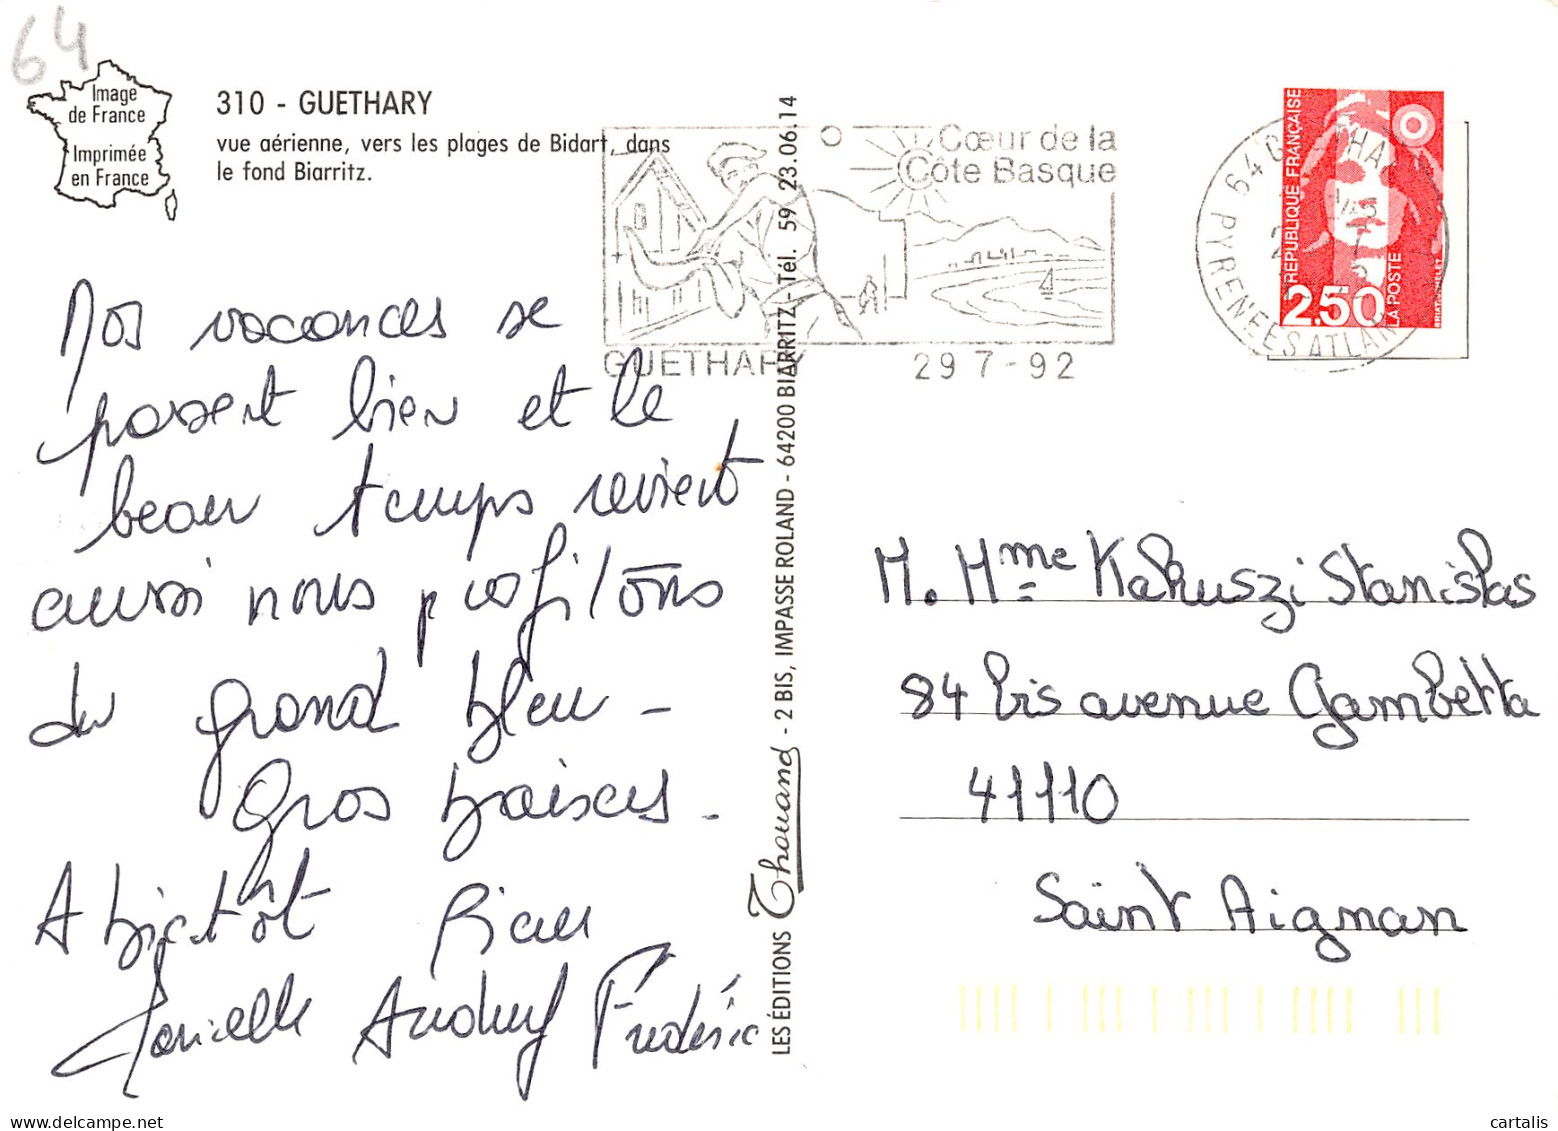 64
Image
de France
Imprimée
en France
310 - GUETHARY
vue aérienne, vers les plages de Bidart, dans
le fond Biarritz.
Cœur de la
Côte Basque
GUETHARY 29 7 - 92
64 GUETHARY
PYRENEES ATLAN
RÉPUBLIQUE FRANÇAISE
2,50
LA POSTE
BRIAT JUMELET
Nos vacances se
passent bien et le
beau temps revient
aussi nous profitons
du grand bleu -
Gros baisers.
A bientôt
Danielle Audrey Frédéric
LES ÉDITIONS Thouand - 2 BIS, IMPASSE ROLAND - 64200 BIARRITZ - Tél. 59 23.06.14
M. Mme Kakuszi Stanislas
84 bis avenue Gambetta
41110
Saint Aignan
cartalis